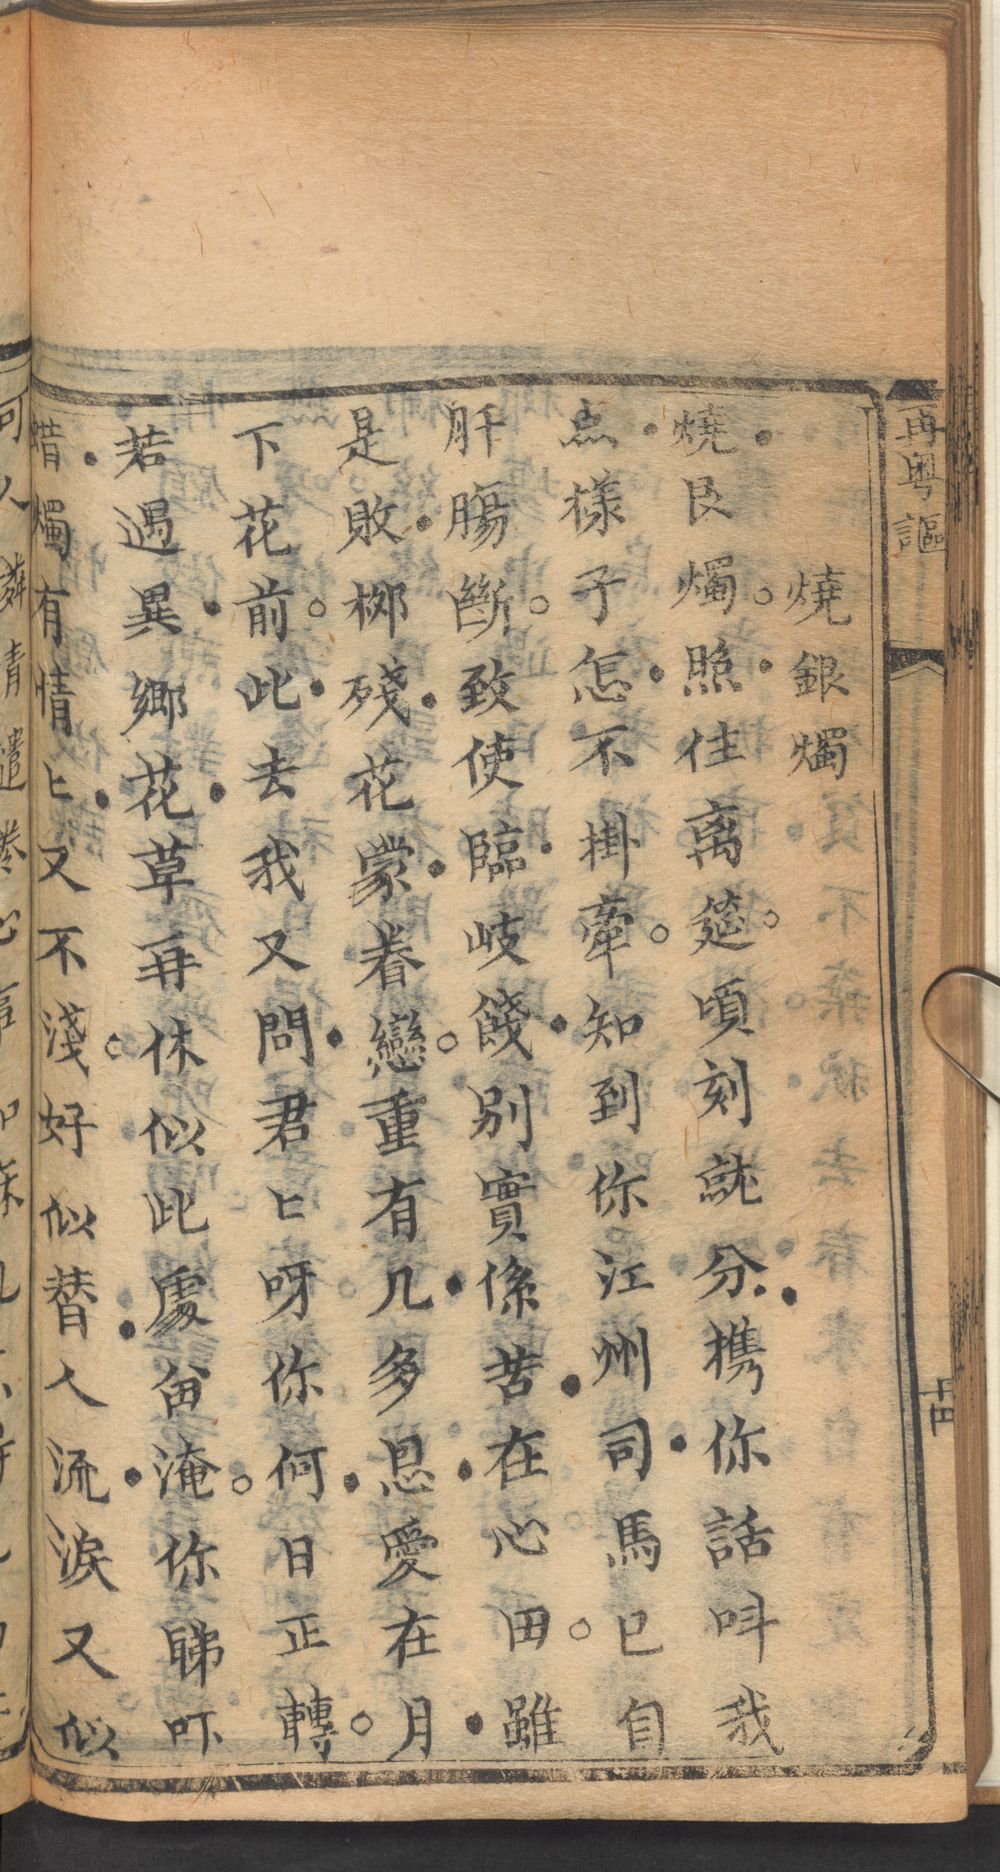 再粤謳
十四
燒銀燭
燒艮燭。照住离筵。頃刻就分携你話呌我
点樣子怎不掛牽。知到你江州司馬已自
肝腸斷。致使臨岐餞别實係苦在心田。雖
是敗栁殘花蒙眷戀。重有几多恩愛在月
下花前。此去我又問君〻呀你何日正轉。
若遇異鄉花草再休似此處留淹。你睇吓
蜡燭有情〻又不淺。好似替人流淚又似